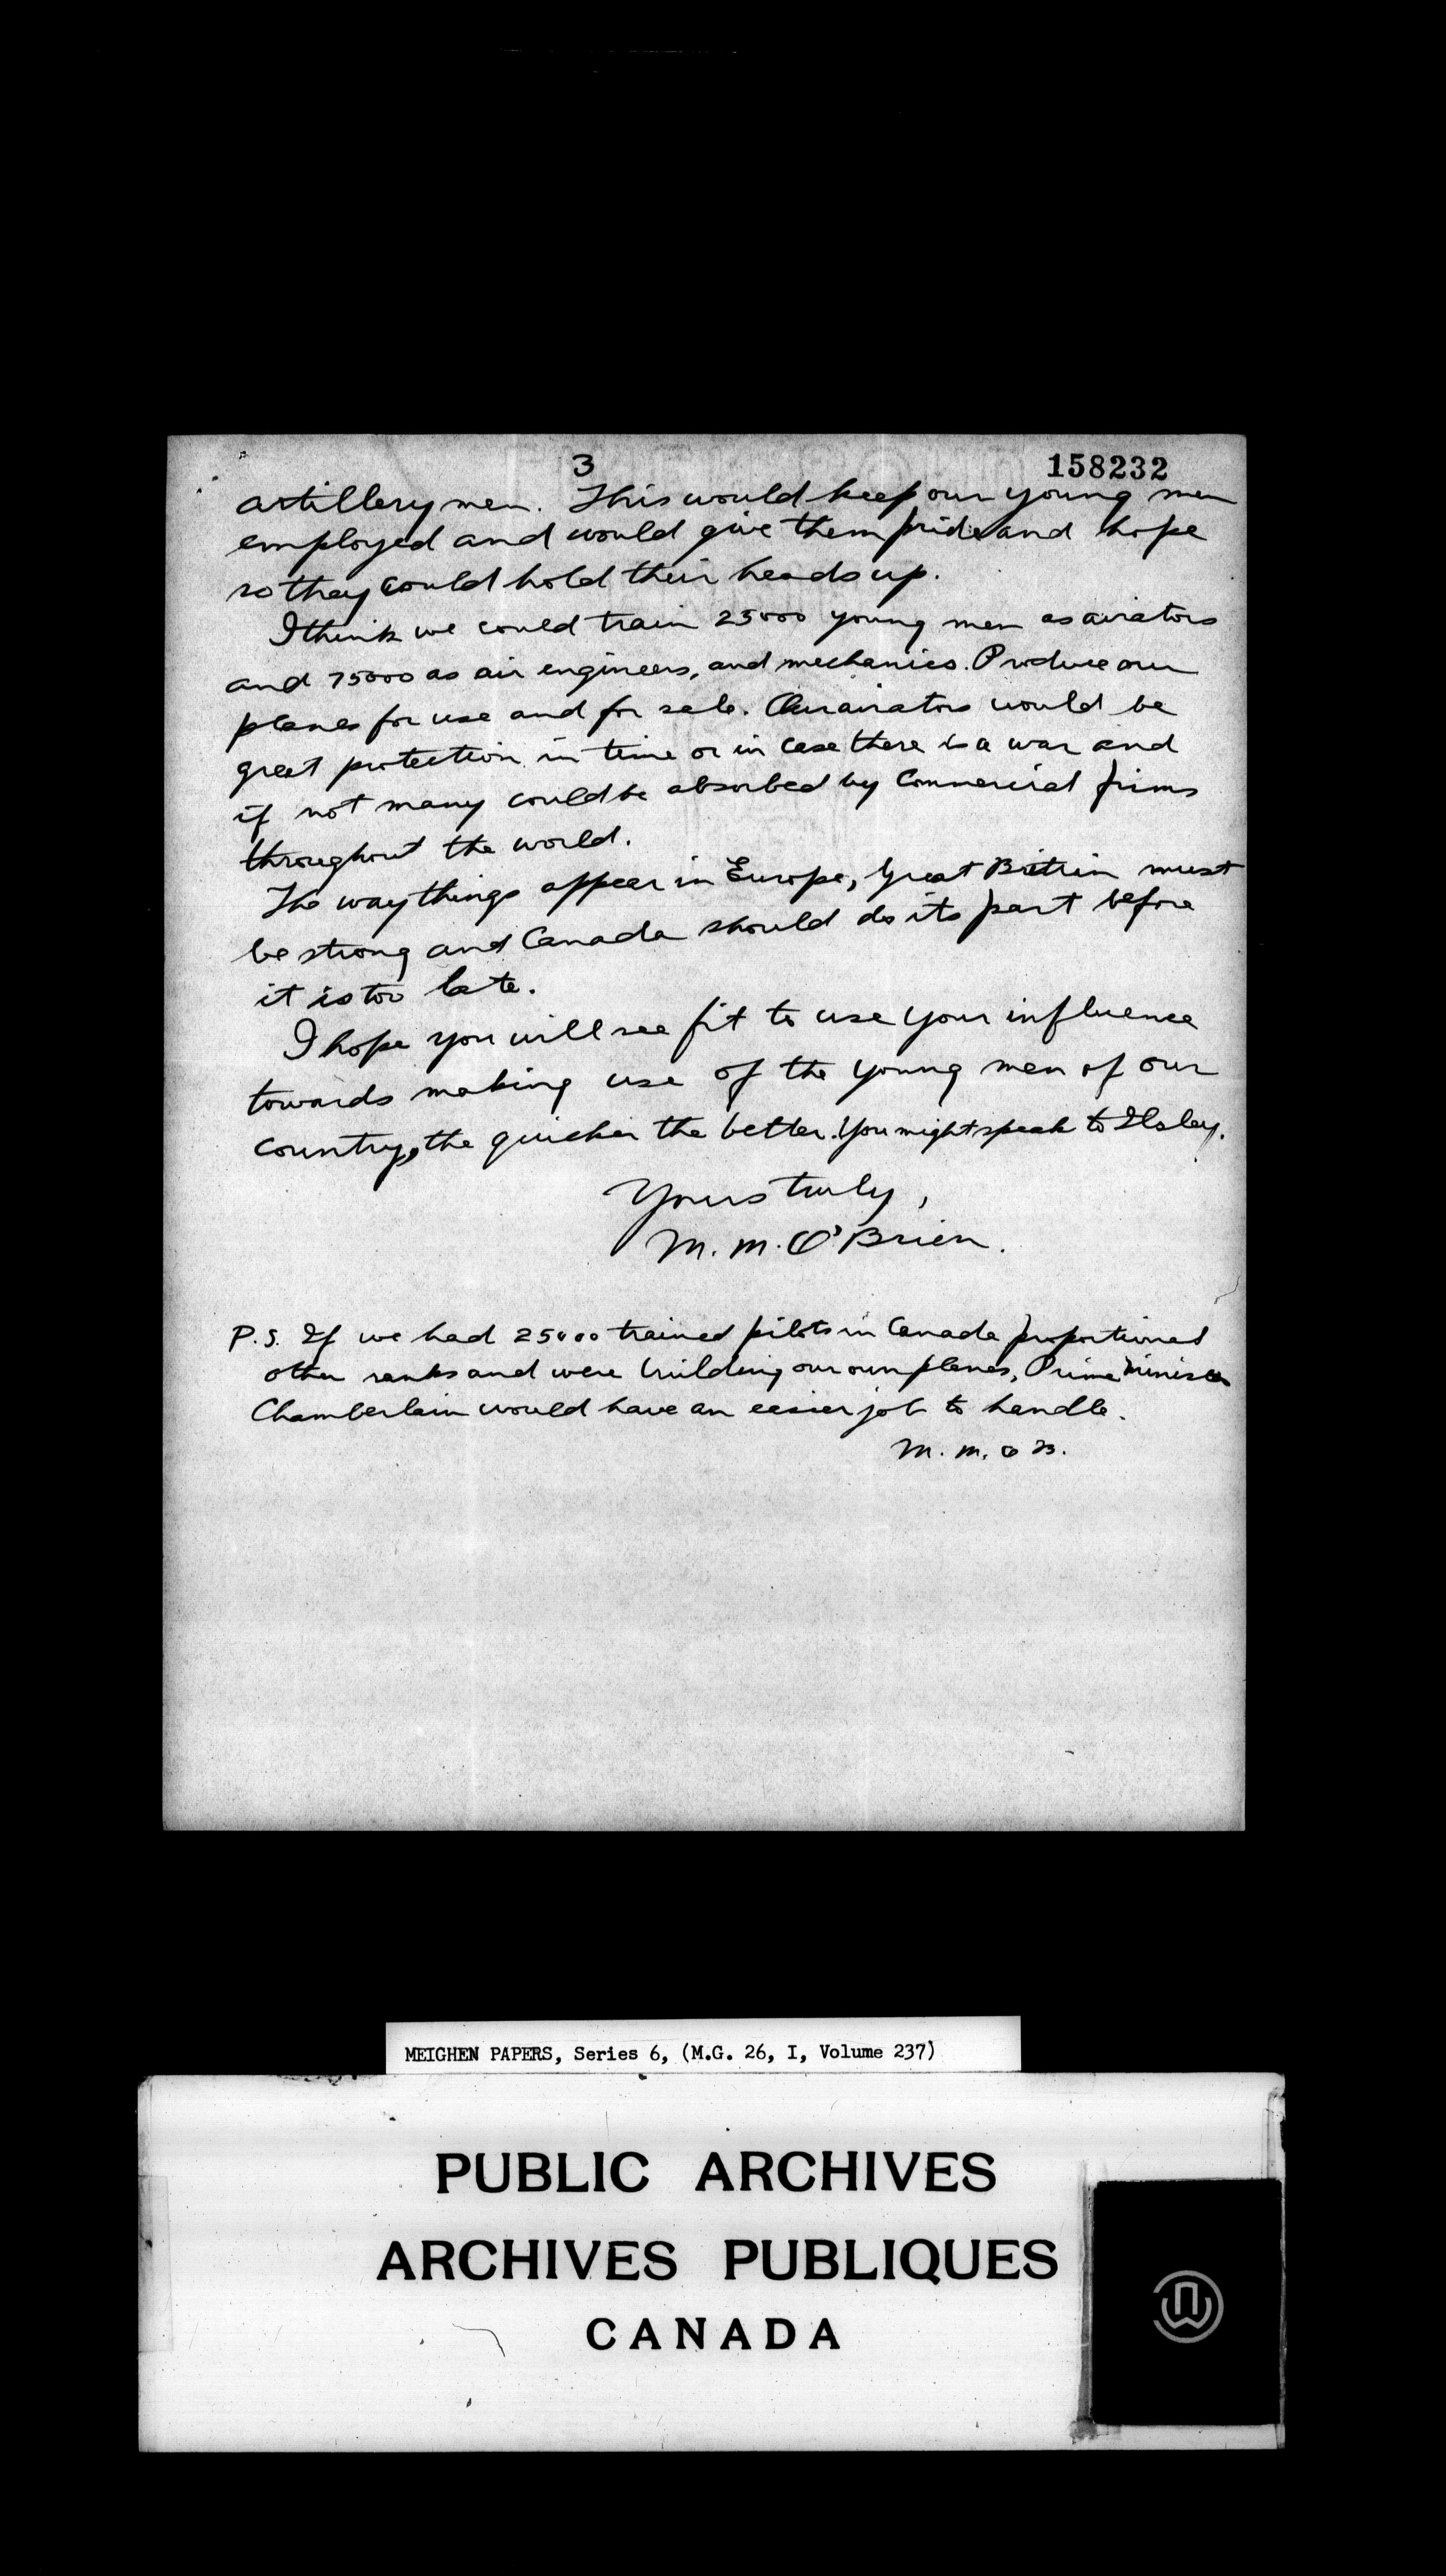 3
158232
artillery men. This would keep our young men
employed and would give them pride and hope
so they could hold their heads up.
I think we could train 25000 young men as aviators
and 75000 as air engineers, and mechanics. Produce our
planes for use and for sale. Our aviators would be
great protection in time or in case there is a war and
if not many could be absorbed by Commercial firms
throughout the world.
The way things appear in Europe, Great Britain must
be strong and Canada should do its part before
it is too late.
I hope you will see fit to use your influence
towards making use of the young men of our
country, the quicker the better. You might speak to Ilsley.
Yours truly,
M. M. O'Brien.
P.S. If we had 25000 trained pilots in Canada proportional
other ranks and were building our own planes, Prime Minister
Chamberlain would have an easier job to handle.
M. M. O B.
MEIGHEN PAPERS, Series 6, (M.G. 26, I, Volume 237)
PUBLIC ARCHIVES
ARCHIVES PUBLIQUES
CANADA